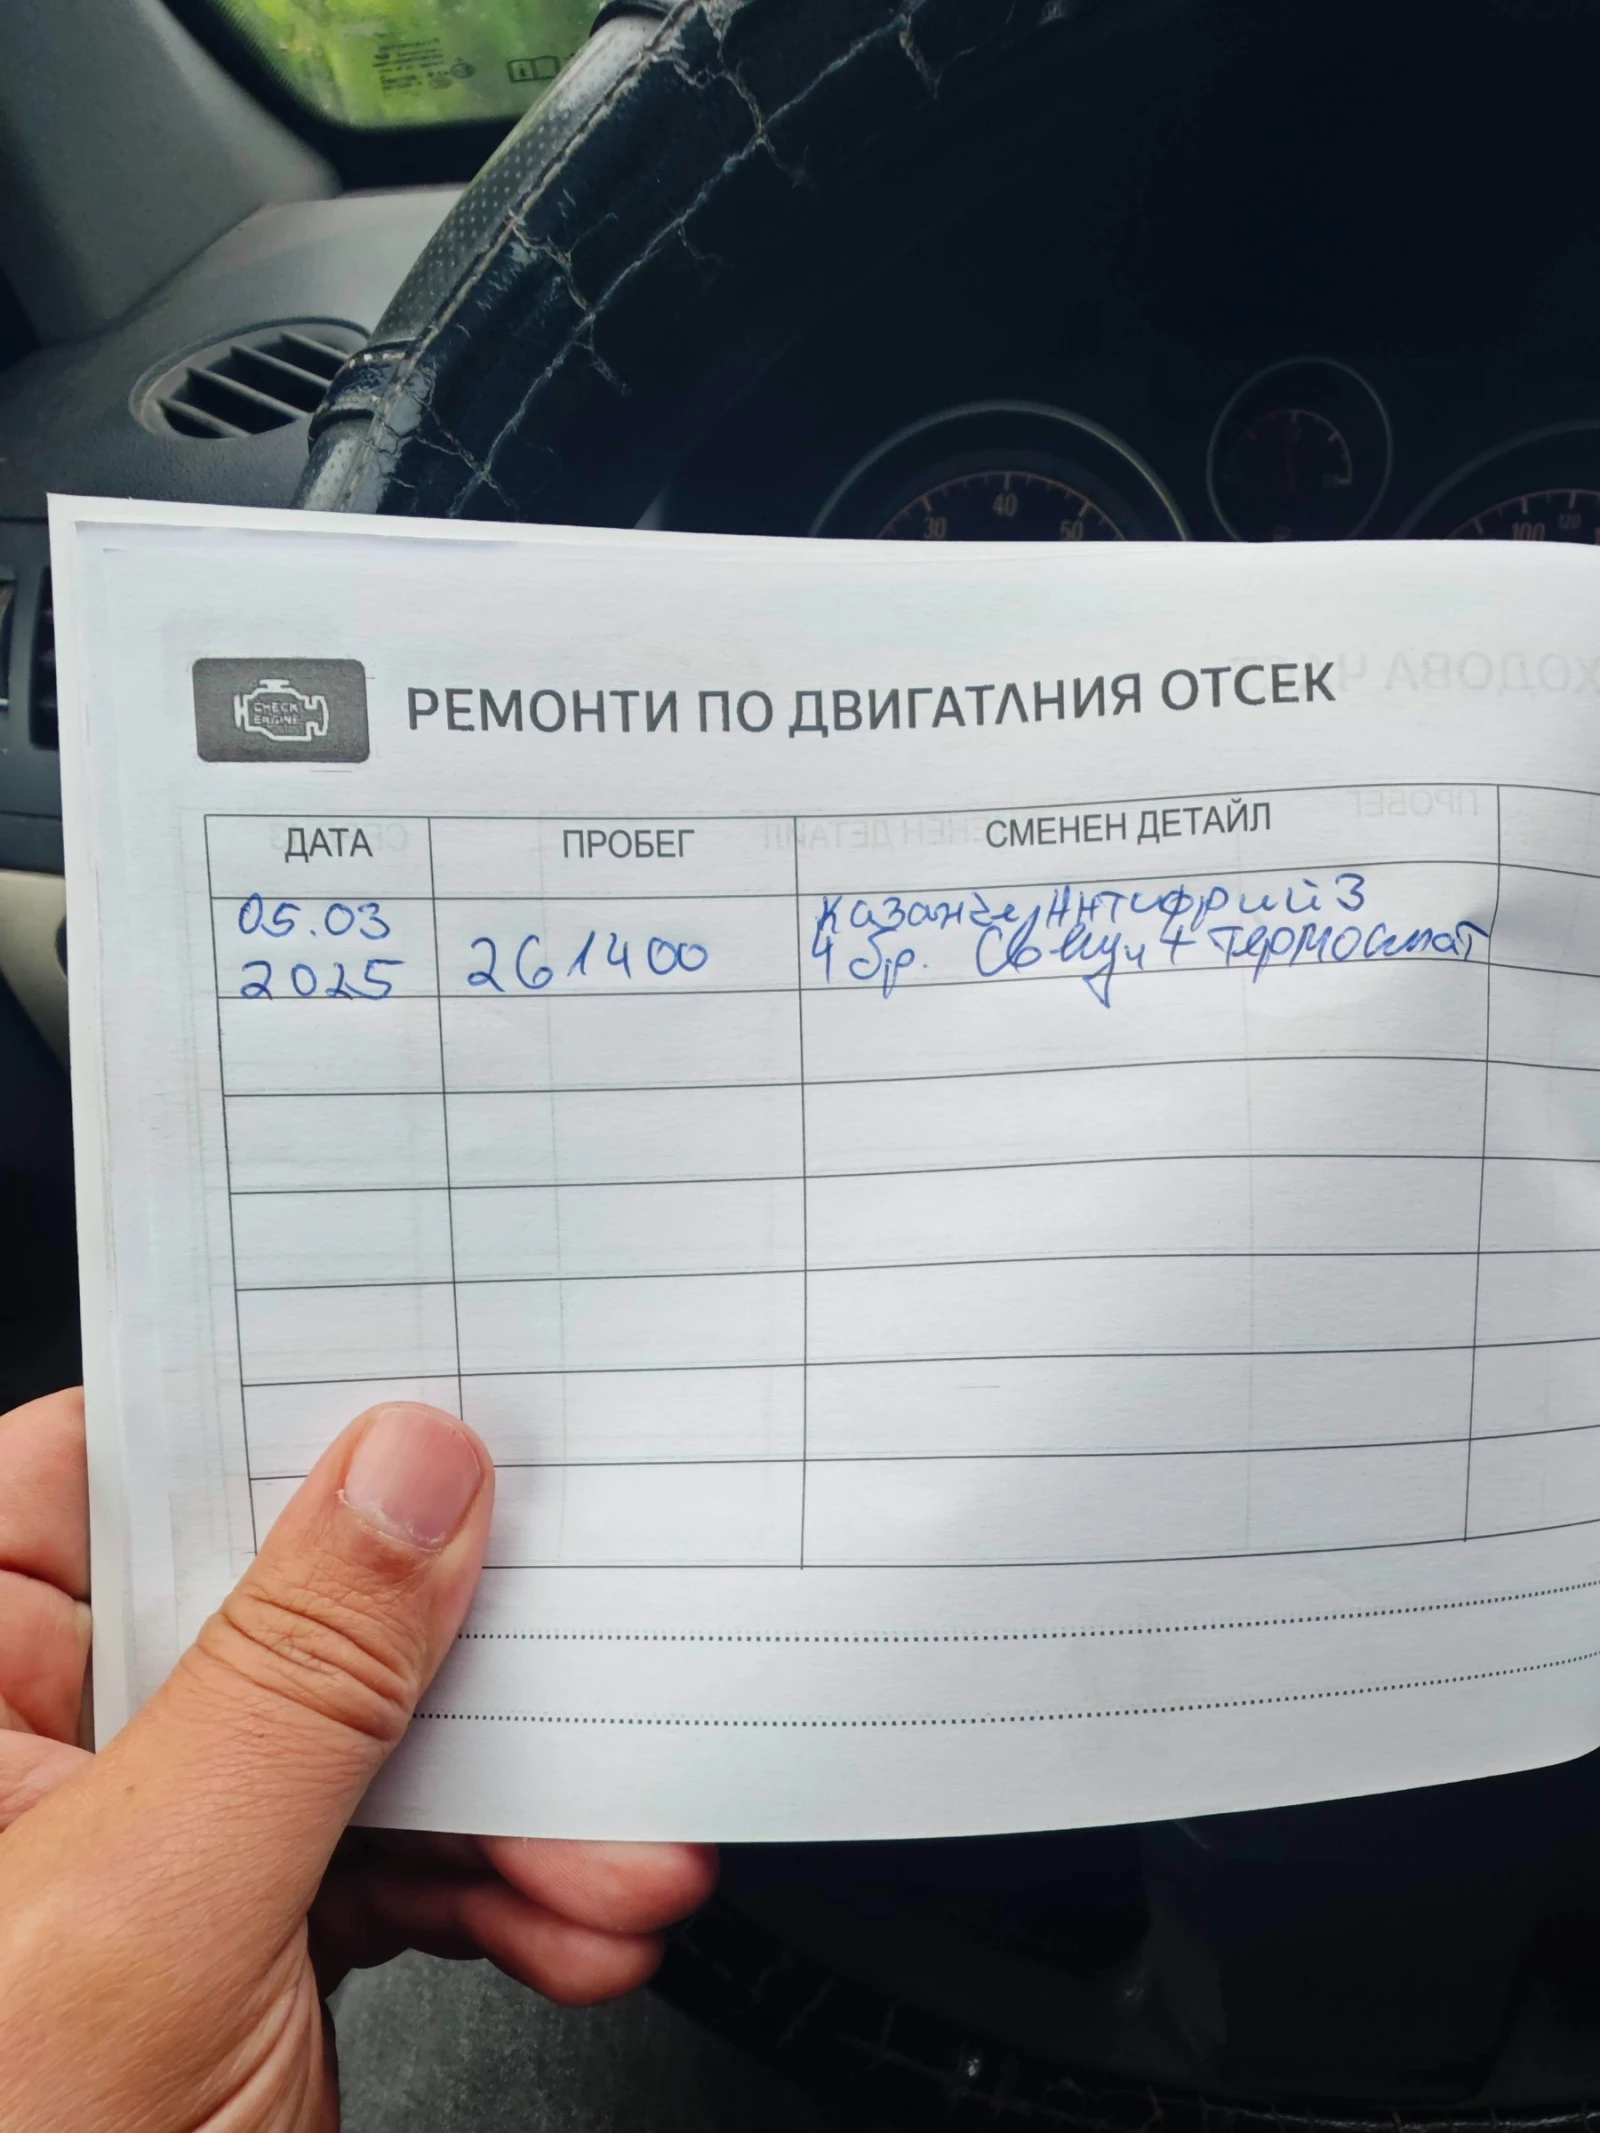 CHECK
ENGINE
РЕМОНТИ ПО ДВИГАТЛНИЯ ОТСЕК
ДАТА ПРОБЕГ СМЕНЕН ДЕТАЙЛ
05.03
2025
261400
Казанче, Антифрийз
4 бр. Свещи + термостат
30 40 50
100 120